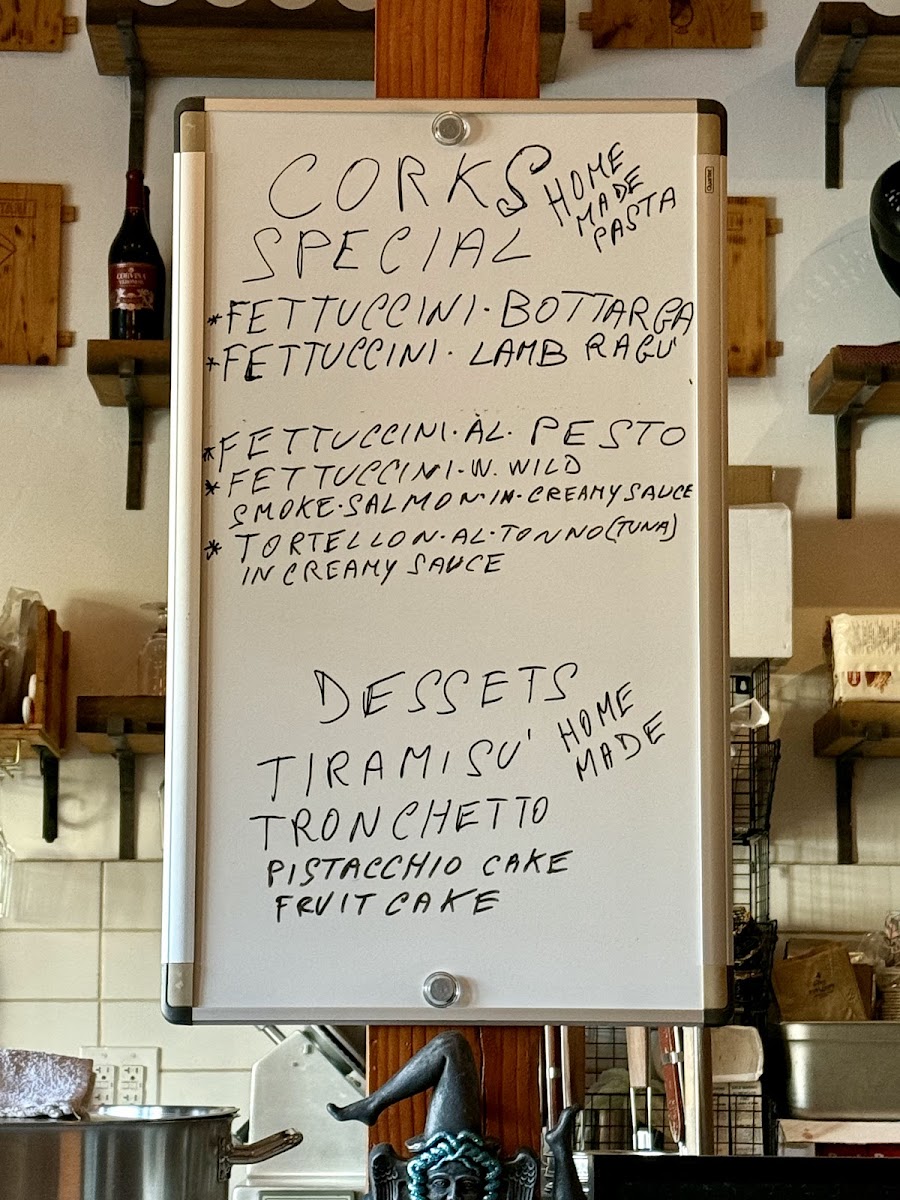 CORKS
HOME
MADE
PASTA
SPECIAL
*FETTUCCINI·BOTTARGA
*FETTUCCINI·LAMB RAGU'
*FETTUCCINI·AL·PESTO
*FETTUCCINI·W.WILD
SMOKE·SALMON·IN·CREAMY SAUCE
*TORTELLON·AL·TONNO(TUNA)
IN CREAMY SAUCE
DESSETS
TIRAMISU'
HOME
MADE
TRONCHETTO
PISTACCHIO CAKE
FRUIT CAKE
Quartet
CORVINA